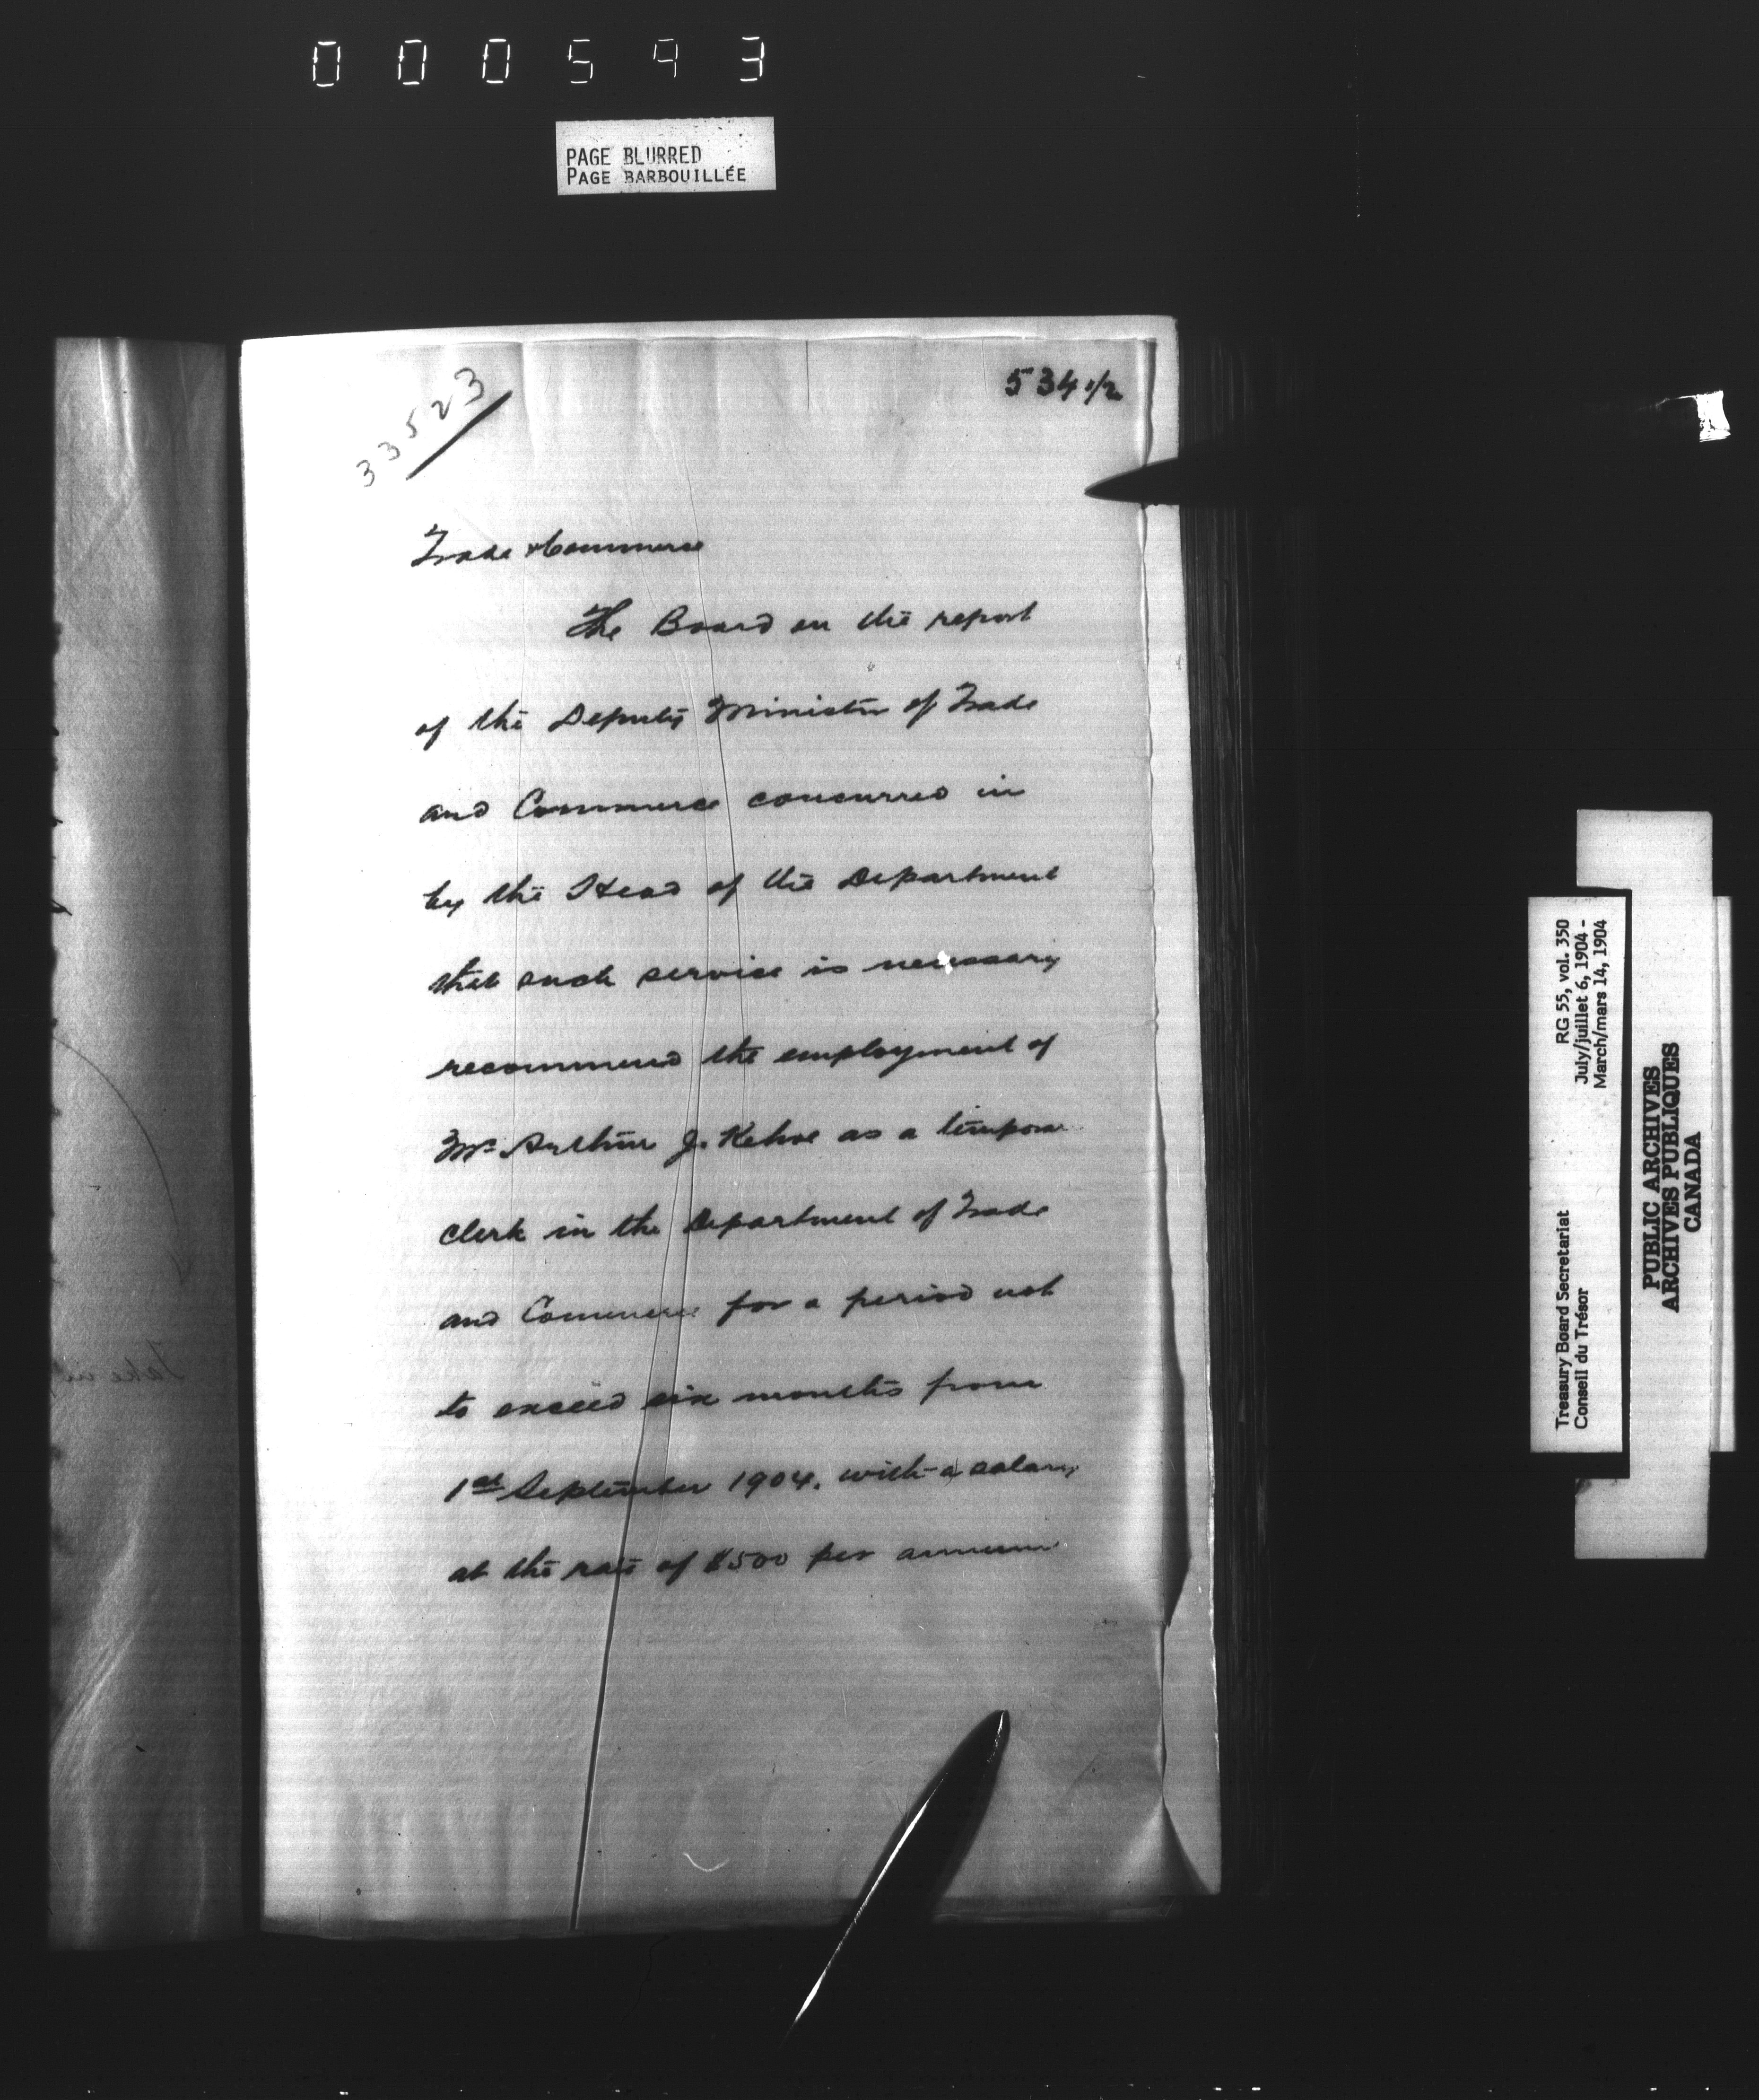 000593
PAGE BLURRED
PAGE BARBOUILLÉE
534 1/2
33523
Trade & Commerce
The Board on the report
of the Deputy Minister of Trade
and Commerce concurred in
by the Head of the Department
that such service is necessary
recommend the employment of
Mr Arthur J. Kehoe as a tempora
clerk in the Department of Trade
and Commerce for a period not
to exceed six months from
1st September 1904. with a salary
at the rate of $500 per annum
RG 55, vol. 350
July/juillet 6, 1904 -
March/mars 14, 1904
Treasury Board Secretariat
Conseil du Trésor
PUBLIC ARCHIVES
ARCHIVES PUBLIQUES
CANADA